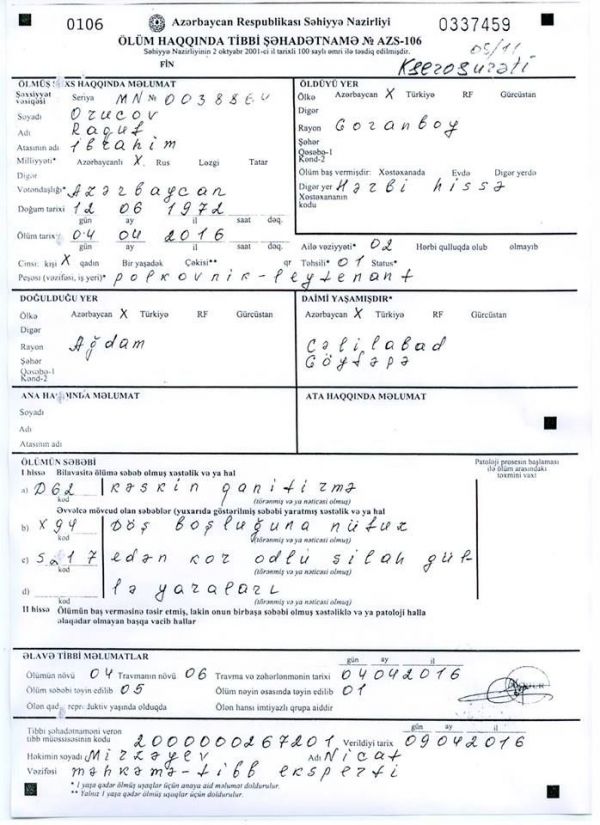 0106 Azərbaycan Respublikası Səhiyyə Nazirliyi 0337459
ÖLÜM HAQQINDA TİBBİ ŞƏHADƏTNAMƏ № AZS-106
Səhiyyə Nazirliyinin 2 oktyabr 2001-ci il tarixli 100 saylı əmri ilə təsdiq edilmişdir.
FİN
05/11
Kserosurəti
ÖLMÜŞ ŞƏXS HAQQINDA MƏLUMAT
Şəxsiyyət vəsiqəsi Seriya MN №
Soyadı Orucov
Adı Raquf
Atasının adı ibrahim
Milliyyəti* Azərbaycanlı X Rus Ləzgi Tatar
Digər
Vətəndaşlığı* Azərbaycan
Doğum tarixi 12 06 1972
gün ay il saat dəq.
Ölüm tarixi 04 04 2016
gün ay il saat dəq.
Cinsi: kişi X qadın Bir yaşadək Çəkisi** qr
Peşəsi (vəzifəsi, iş yeri)* polkovnik-leytenant
ÖLDÜYÜ YER
Ölkə Azərbaycan X Türkiyə RF Gürcüstan
Digər
Rayon Goranboy
Şəhər
Qəsəbə-1
Kənd-2
Ölüm baş vermişdir: Xəstəxanada Evdə Digər yerdə
Digər yer Hərbi hissə
Xəstəxananın kodu
Ailə vəziyyəti* 02 Hərbi qulluqda olub olmayıb
Təhsili* 01 Status*
DOĞULDUĞU YER
Ölkə Azərbaycan X Türkiyə RF Gürcüstan
Digər
Rayon Ağdam
Şəhər
Qəsəbə-1
Kənd-2
DAİMİ YAŞAMIŞDIR*
Azərbaycan X Türkiyə RF Gürcüstan
Cəlilabad
Göytəpə
ANA HAQQINDA MƏLUMAT
Soyadı
Adı
Atasının adı
ATA HAQQINDA MƏLUMAT
ÖLÜMÜN SƏBƏBİ
Patoloji prosesin başlaması
ilə ölüm arasındakı
təxmini vaxt
I hissə Bilavasitə ölümə səbəb olmuş xəstəlik və ya hal
a) D62 kəskin qanitirmə
kod (törənmiş və ya nəticəsi olmuş)
Əvvəlcə mövcud olan səbəblər (yuxarıda göstərilmiş səbəbi yaratmış xəstəlik və ya hal
b) X94 Döş boşluğuna nüfuz
kod (törənmiş və ya nəticəsi olmuş)
c) S217 edən kor odlu silah gül-
kod (törənmiş və ya nəticəsi olmuş)
d) lə yaraları
kod (törənmiş və ya nəticəsi olmuş)
II hissə Ölümün baş verməsinə təsir etmiş, lakin onun birbaşa səbəbi olmuş xəstəliklə və ya patoloji halla
əlaqədar olmayan başqa vacib hallar
ƏLAVƏ TİBBİ MƏLUMATLAR
gün ay il
Ölümün növü 04 Travmanın növü 06 Travma və zəhərlənmənin tarixi 04042016
Ölüm səbəbi təyin edilib 05 Ölüm nəyin əsasında təyin edilib 01
Ölən qadın repr: duktiv yaşında olduqda Ölən hansı imtiyazlı qrupa aiddir
Tibbi şəhadətnaməni verən gün ay il
tibb müəssisəsinin kodu 200000267201 Verildiyi tarix 09042016
Həkimin soyadı Mirzəyev Adı Nicat
Vəzifəsi məhkəmə-tibb eksperti
* 1 yaşa qədər ölmüş uşaqlar üçün anaya aid məlumat doldurulur.
** Yalnız 1 yaşa qədər ölmüş uşaqlar üçün doldurulur.